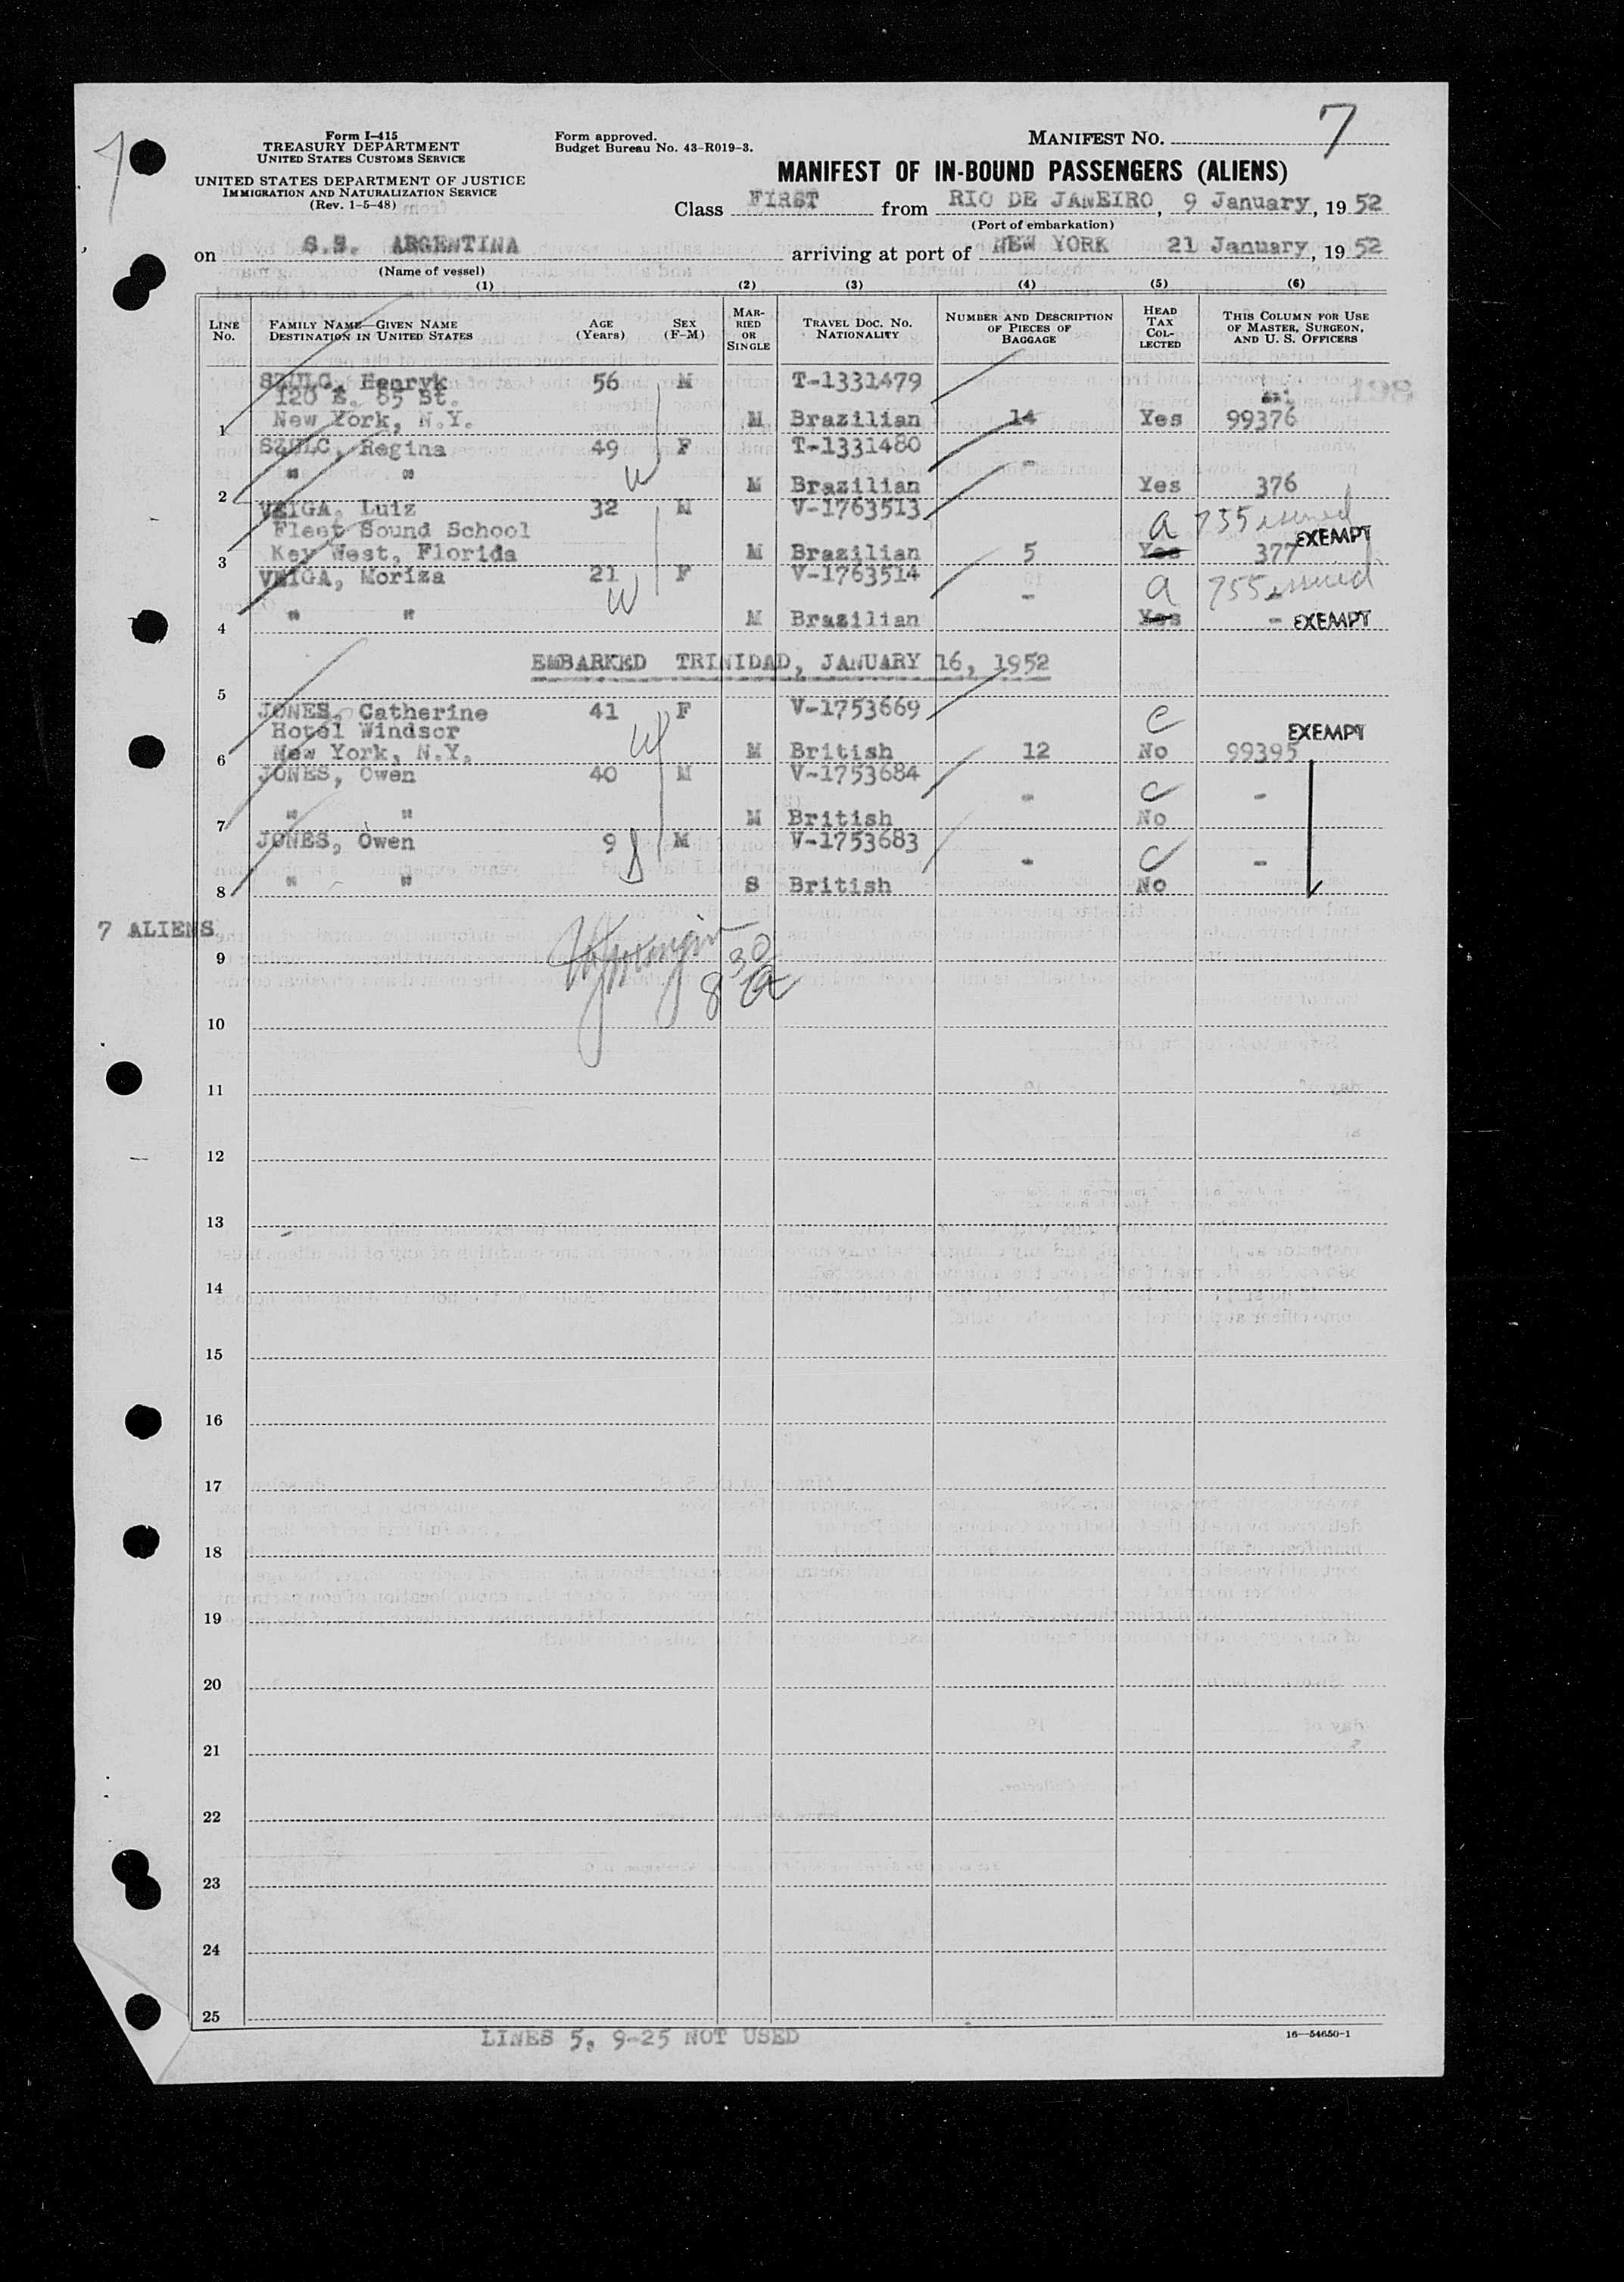 7
7
Form I-415
TREASURY DEPARTMENT
UNITED STATES CUSTOMS SERVICE
UNITED STATES DEPARTMENT OF JUSTICE
IMMIGRATION AND NATURALIZATION SERVICE
(Rev. 1-5-48)
Form approved.
Budget Bureau No. 43-R019-3.
MANIFEST NO.
MANIFEST OF IN-BOUND PASSENGERS (ALIENS)
Class FIRST from RIO DE JANEIRO, 9 January, 1952
(Port of embarkation)
on S.S. ARGENTINA arriving at port of NEW YORK 21 January, 1952
(Name of vessel)
(1) (2) (3) (4) (5) (6)
LINE No. FAMILY NAME—GIVEN NAME DESTINATION IN UNITED STATES AGE (Years) SEX (F-M) MARRIED OR SINGLE TRAVEL DOC. NO. NATIONALITY NUMBER AND DESCRIPTION OF PIECES OF BAGGAGE HEAD TAX COLLECTED THIS COLUMN FOR USE OF MASTER, SURGEON, AND U. S. OFFICERS
SZULC, Henryk 56 M T-1331479
120 E. 85 St.
1 New York, N.Y. M Brazilian 14 Yes 99376
SZULC, Regina 49 F T-1331480 -
2 " " W M Brazilian Yes 376
VEIGA, Luiz 32 M V-1763513 a 755 issued
Fleet Sound School EXEMPT
3 Key West, Florida M Brazilian 5 Yes 377
VEIGA, Moriza 21 F V-1763514 - a 755 issued
4 " " W M Brazilian Yes - EXEMPT
EMBARKED TRINIDAD, JANUARY 16, 1952
5
JONES, Catherine 41 F V-1753669 c
Hotel Windsor W EXEMPT
6 New York, N.Y. M British 12 No 99395
JONES, Owen 40 M V-1753684 - c -
7 " " M British No
JONES, Owen 9 M V-1753683 - c -
8 " " S British No
7 ALIENS
9
8 30 a
10
11
12
13
14
15
16
17
18
19
20
21
22
23
24
25
LINES 5, 9-25 NOT USED
16—54650-1